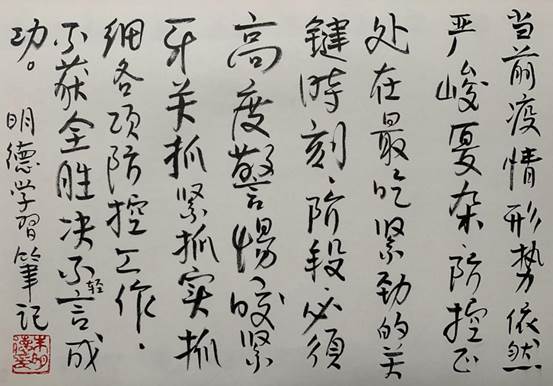 当前疫情形势依然
严峻复杂防控正
处在最吃紧劲的关
键時刻、阶段必须
高度警惕咬紧
牙关抓紧抓实抓
细各项防控工作.
不获全胜决不轻言成
功。
明德学習筆记